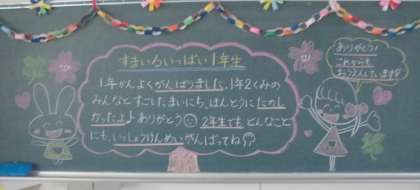 すまいるいっぱい1年生
1年かんよくがんばりました。1年2くみの
みんなとすごしたまいにち、ほんとうにたのし
かったよ♪ありがとう☺2年生でもどんなこと
にも、いっしょうけんめいがんばってね
ありがとう!
これからも
おうえんしています